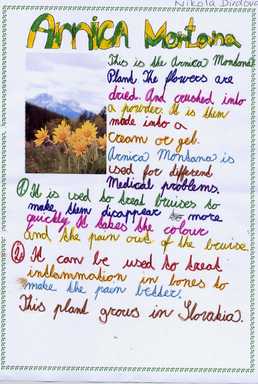 Nikola
Arnica Montana
This is the Arnica Montana
Plant. The flowers are
dried. And crushed into
a powder. It is then
made into a
cream or gel.
Arnica Montana is
used for different
Medical problems.
1 It is used to treat bruises to
make them disappear more
quickly. It takes the colour
and the pain out of the bruise.
2 It can be used to treat
inflammation in bones to
make the pain better.
This plant grows in Slovakia.